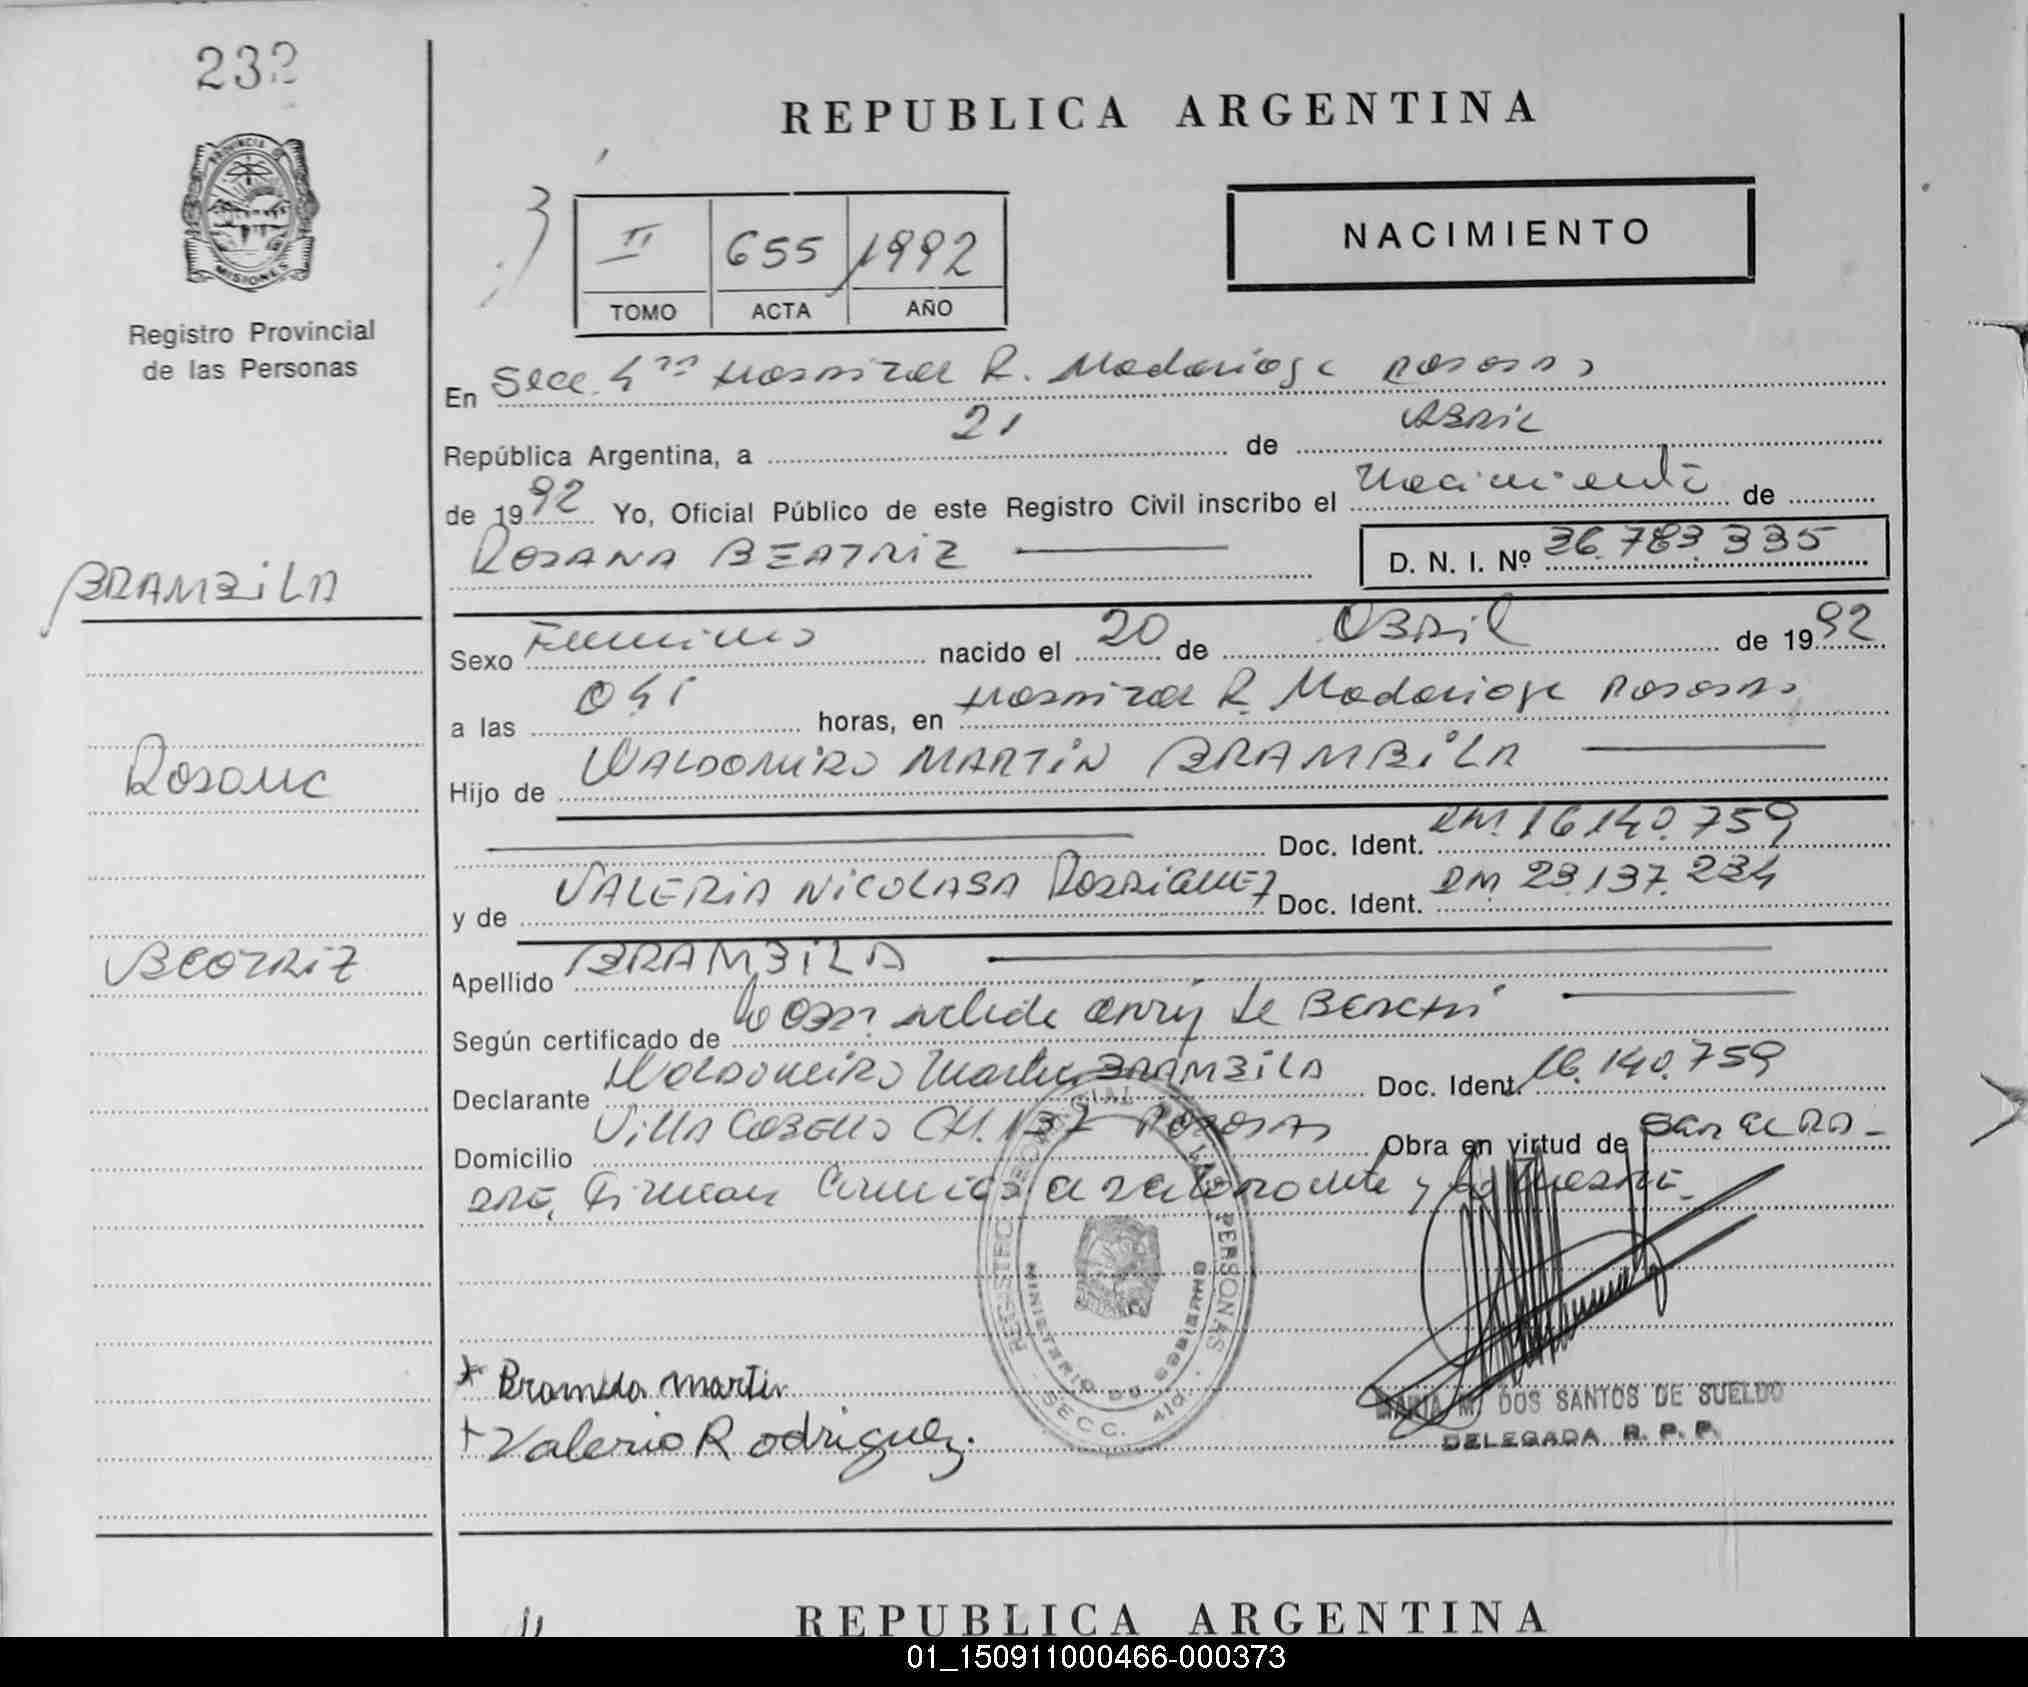 232
REPUBLICA ARGENTINA
PROVINCIA DE
MISIONES
Registro Provincial
de las Personas
II 655 1992
TOMO ACTA AÑO
NACIMIENTO
En Secc. Hospital R. Madariaga Posadas
República Argentina, a 21 de Abril
de 1992 Yo, Oficial Público de este Registro Civil inscribo el Nacimiento de
ROSANA BEATRIZ D. N. I. Nº 36.783.335
BRAMBILA
Sexo Femenino nacido el 20 de Abril de 1992
a las horas, en Hospital R. Madariaga Posadas
Rosana
Hijo de WALDOMIRO MARTIN BRAMBILA
Doc. Ident. DNI. 16.140.759
y de VALERIA NICOLASA RODRIGUEZ Doc. Ident. DNI 23.137.234
Beatriz
Apellido BRAMBILA
Según certificado de de
Declarante Waldomiro Martin BRAMBILA Doc. Ident. 16.140.759
Domicilio Villa Cabello CH. 137 Posadas Obra en virtud de ser el PA-
DRE. Firman
REGISTRO PROVINCIAL DE LAS PERSONAS
MINISTERIO DE GOBIERNO
SECC. 4ta.
* Brambila Martin
+ Valeria Rodriguez.
MARIA M. DOS SANTOS DE SUELDO
DELEGADA R. P. P.
REPUBLICA ARGENTINA
01_150911000466-000373